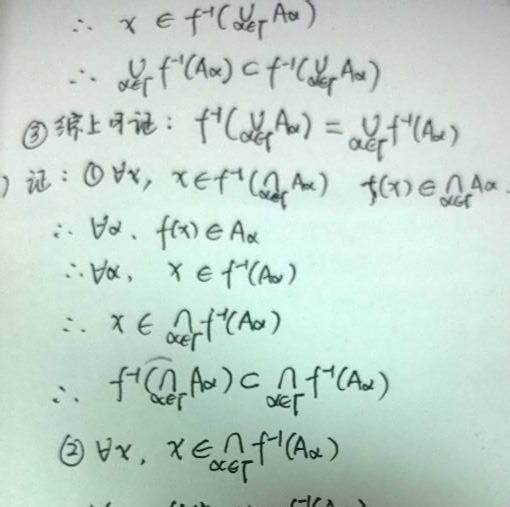 ∴ x ∈ f⁻¹(∪_{α∈Γ} Aα)
∴ ∪_{α∈Γ} f⁻¹(Aα) ⊂ f⁻¹(∪_{α∈Γ} Aα)
③ 综上可证: f⁻¹(∪_{α∈Γ} Aα) = ∪_{α∈Γ} f⁻¹(Aα)
) 证: ① ∀x, x ∈ f⁻¹(∩_{α∈Γ} Aα) f(x) ∈ ∩_{α∈Γ} Aα.
∴ ∀α, f(x) ∈ Aα
∴ ∀α, x ∈ f⁻¹(Aα)
∴ x ∈ ∩_{α∈Γ} f⁻¹(Aα)
∴ f⁻¹(∩_{α∈Γ} Aα) ⊂ ∩_{α∈Γ} f⁻¹(Aα)
② ∀x, x ∈ ∩_{α∈Γ} f⁻¹(Aα)